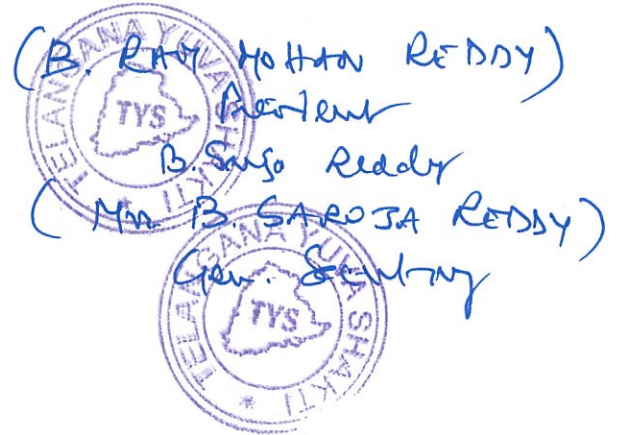 (B. RAM MOHAN REDDY)
President
B. Saroja Reddy
(Mrs. B. SAROJA REDDY)
Gen. Secretary
TELANGANA YUVA SHAKTI
TYS
TELANGANA YUVA SHAKTI
TYS